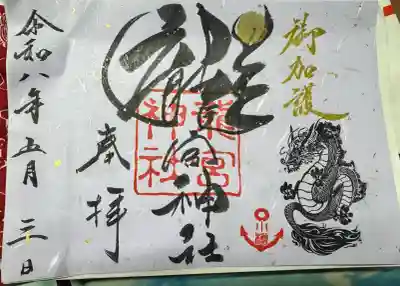 御加護
龍宮神社
龍宮
神社
奉拝
令和八年五月三日